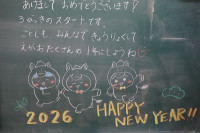 あけまして おめでとうございます!
3がっきの スタートです。
ことしも みんなで きょうりょくして
えがおたくさんの 1年にしようね♡
2026 HAPPY
NEW YEAR!!